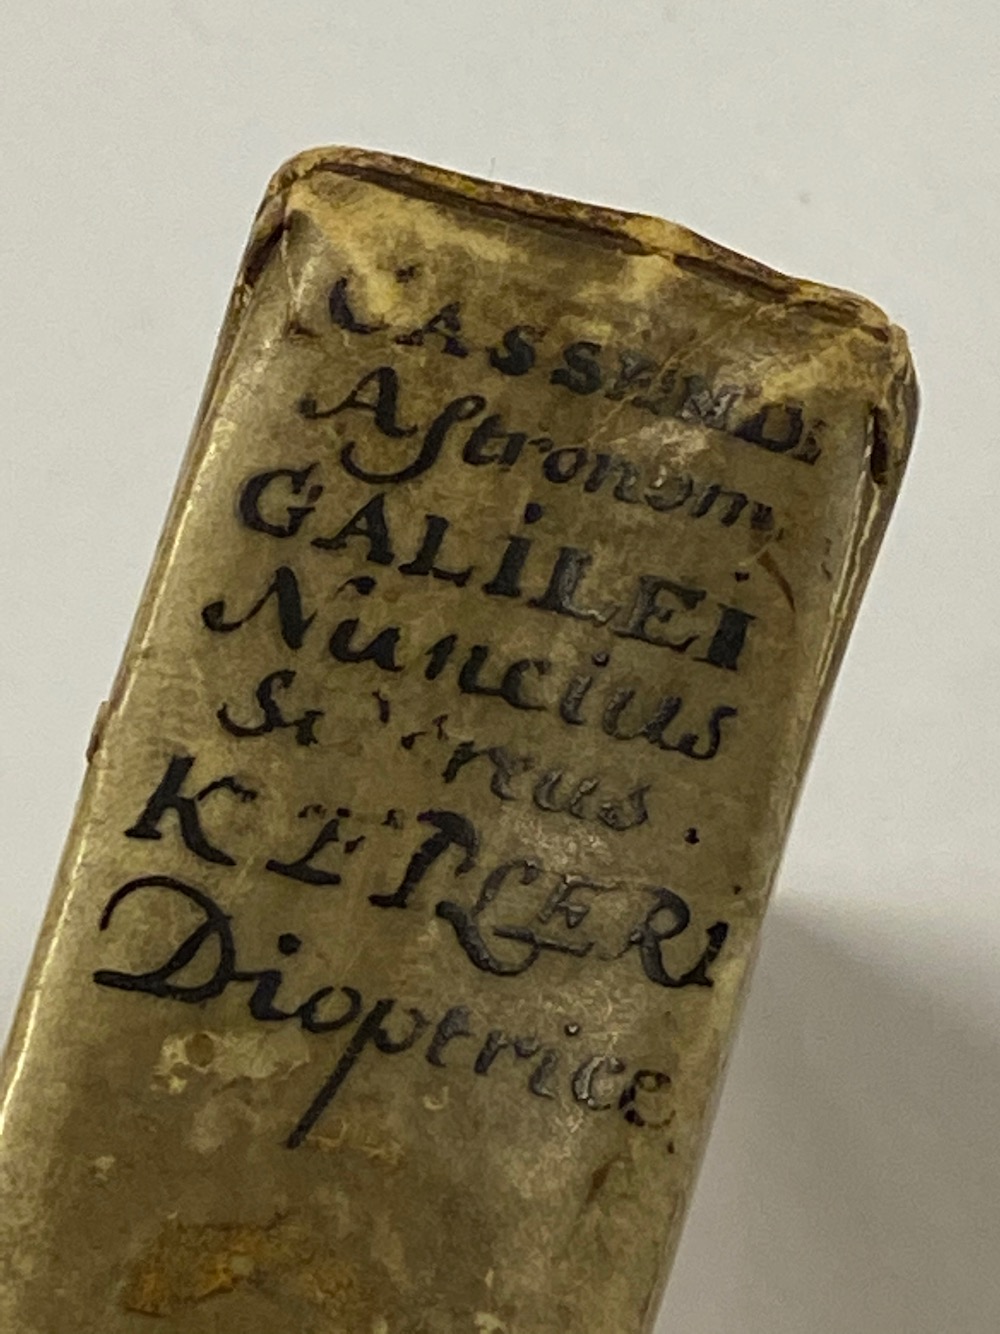 GASSENDI
Aſtronom
GALILEI
Nuncius
Sidereus.
KEPLERI
Dioptrice.